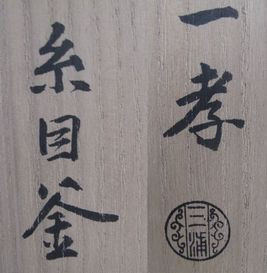 糸目釜
一孝
三浦